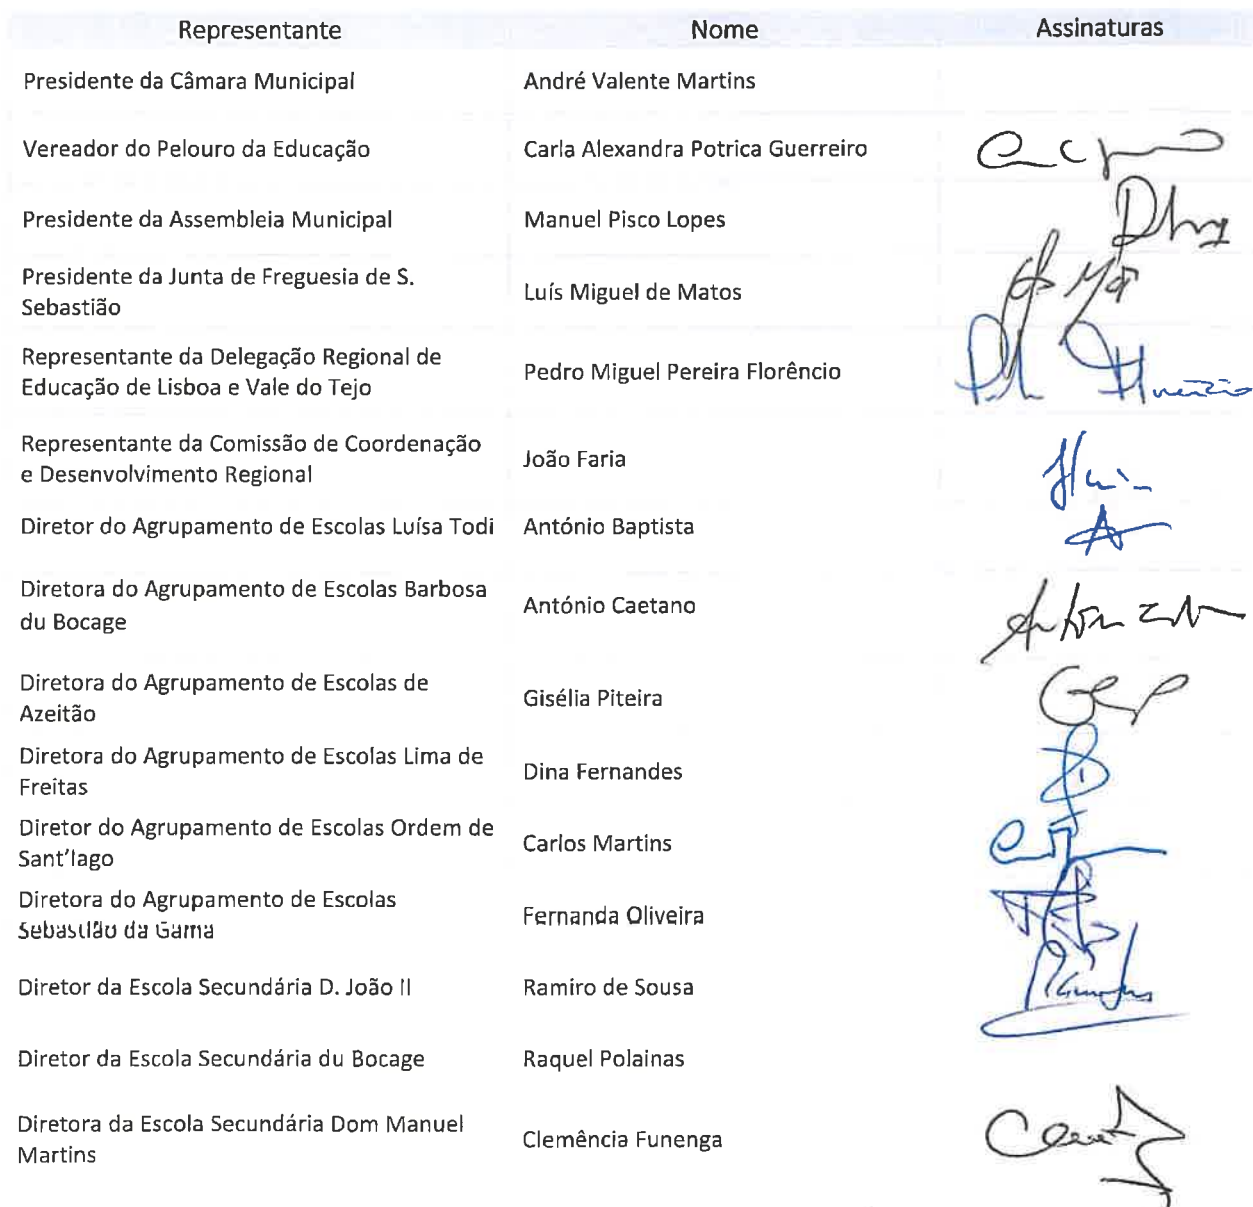 Representante Nome Assinaturas
Presidente da Câmara Municipal André Valente Martins
Vereador do Pelouro da Educação Carla Alexandra Potrica Guerreiro
Presidente da Assembleia Municipal Manuel Pisco Lopes
Presidente da Junta de Freguesia de S.
Sebastião
Luís Miguel de Matos
Representante da Delegação Regional de
Educação de Lisboa e Vale do Tejo
Pedro Miguel Pereira Florêncio
Representante da Comissão de Coordenação
e Desenvolvimento Regional
João Faria
Diretor do Agrupamento de Escolas Luísa Todi António Baptista
Diretora do Agrupamento de Escolas Barbosa
du Bocage
António Caetano
Diretora do Agrupamento de Escolas de
Azeitão
Gisélia Piteira
Diretora do Agrupamento de Escolas Lima de
Freitas
Dina Fernandes
Diretor do Agrupamento de Escolas Ordem de
Sant'Iago
Carlos Martins
Diretora do Agrupamento de Escolas
Sebastião da Gama
Fernanda Oliveira
Diretor da Escola Secundária D. João II Ramiro de Sousa
Diretor da Escola Secundária du Bocage Raquel Polainas
Diretora da Escola Secundária Dom Manuel
Martins
Clemência Funenga